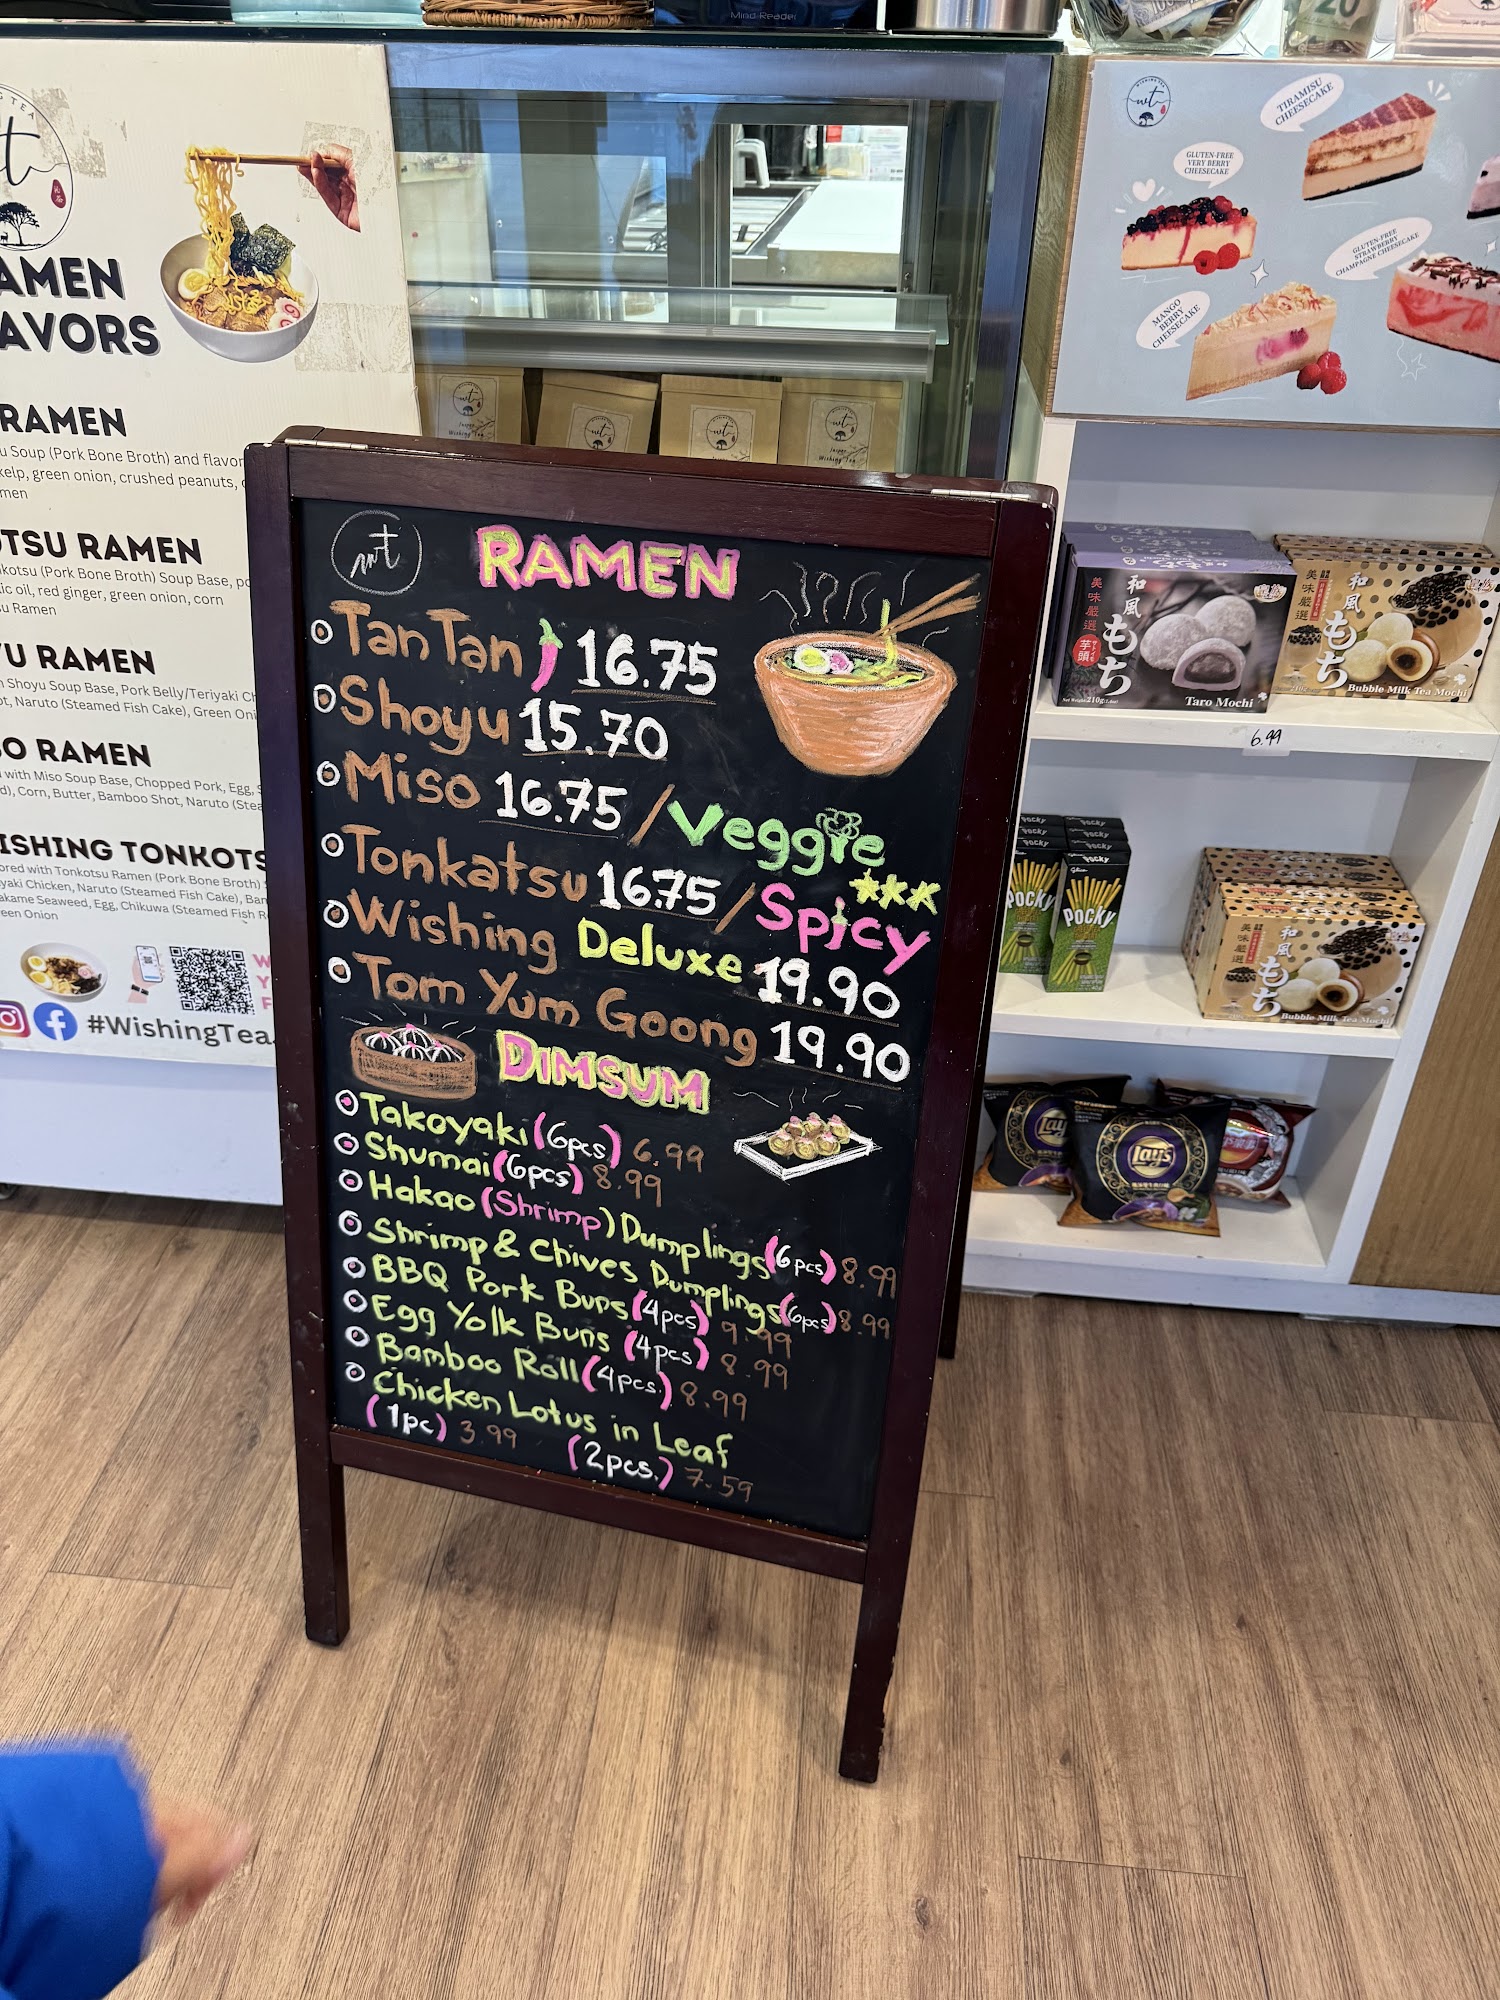 Mind Reader
20
AMEN
AVORS
RAMEN
Soup (Pork Bone Broth) and flavor
kelp, green onion, crushed peanuts,
men
TSU RAMEN
nkotsu (Pork Bone Broth) Soup Base,
ic oil, red ginger, green onion, corn
su Ramen
U RAMEN
Shoyu Soup Base, Pork Belly/Teriyaki
ot, Naruto (Steamed Fish Cake), Green
SO RAMEN
with Miso Soup Base, Chopped Pork, Egg,
Corn, Butter, Bamboo Shot, Naruto
ISHING TONKOTS
ored with Tonkotsu Ramen (Pork Bone Broth)
yaki Chicken, Naruto (Steamed Fish Cake),
akame Seaweed, Egg, Chikuwa (Steamed Fish
een Onion
#WishingTea
wt
Wishing Tea
wt
RAMEN
TanTan 16.75
Shoyu 15.70
Miso 16.75 / Veggie
Tonkatsu 16.75 / Spicy
Wishing Deluxe 19.90
Tom Yum Goong 19.90
DIMSUM
Takoyaki (6pcs) 6.99
Shumai (6pcs) 8.99
Hakao (Shrimp) Dumplings (6pcs) 8.99
Shrimp & Chives Dumplings (6pcs) 8.99
BBQ Pork Buns (4pcs) 9.99
Egg Yolk Buns (4pcs) 8.99
Bamboo Roll (4pcs.) 8.99
Chicken Lotus in Leaf
(1pc) 3.99 (2pcs.) 7.59
WISHING TEA
wt
TIRAMISU
CHEESECAKE
GLUTEN-FREE
VERY BERRY
CHEESECAKE
GLUTEN-FREE
STRAWBERRY
CHAMPAGNE CHEESECAKE
MANGO
BERRY
CHEESECAKE
美味嚴選
和風
もち
芋頭
Taro Mochi
美味嚴選
和風
もち
Bubble Milk Tea Mochi
6.99
POCKY
POCKY
POCKY
POCKY
POCKY
Glico
POCKY
美味嚴選
和風
もち
Bubble Milk Tea Mochi
Lay's
Lay's